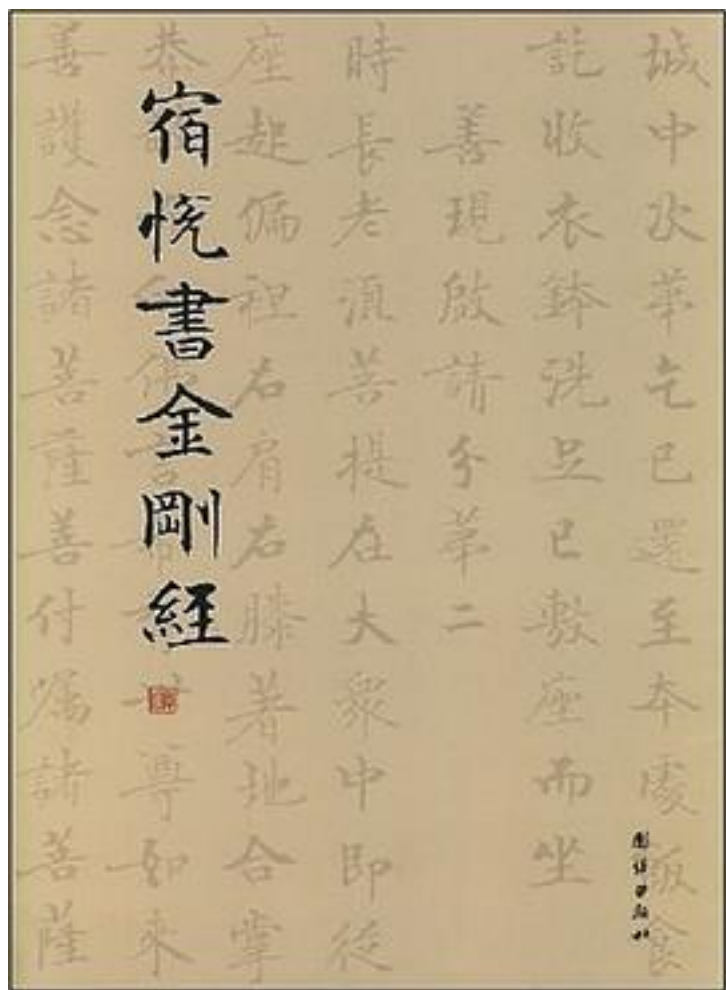 宿悦書金剛経
城中次第乞已還至本處飯食
訖收衣鉢洗足已敷座而坐
善現啟請分第二
時長老須菩提在大眾中即從
座起偏袒右肩右膝著地合掌
恭敬白佛言希有世尊如來
善護念諸菩薩善付囑諸菩薩
团结出版社